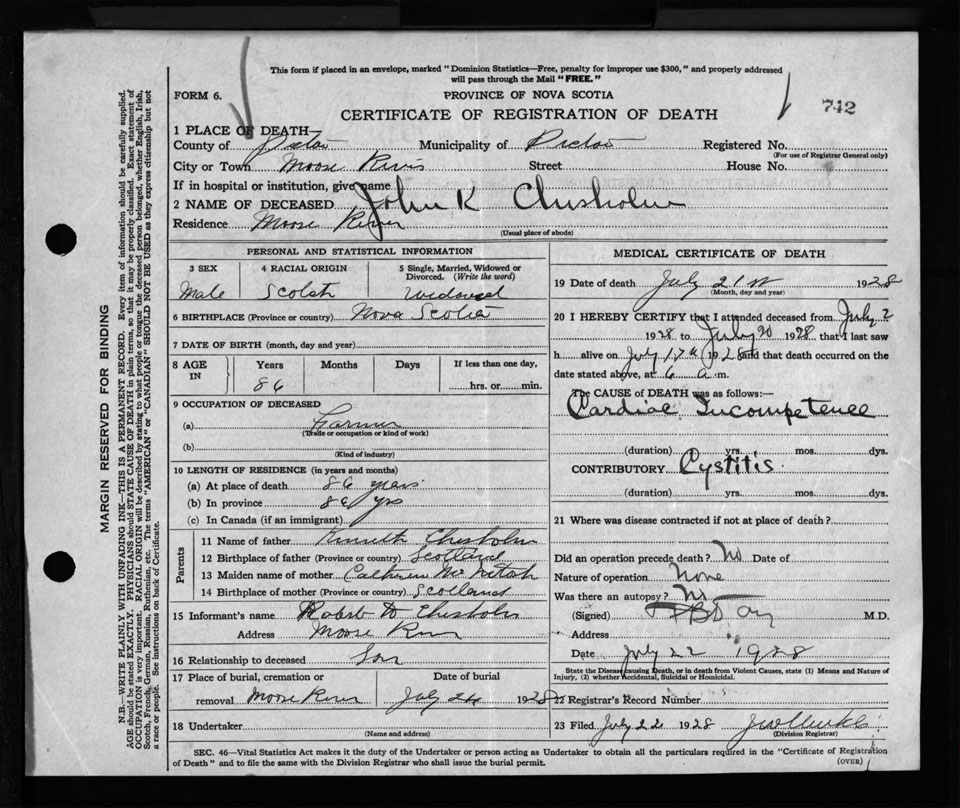 This form if placed in an envelope, marked "Dominion Statistics—Free, penalty for improper use $300," and properly addressed
will pass through the Mail "FREE."
FORM 6.
PROVINCE OF NOVA SCOTIA
742
CERTIFICATE OF REGISTRATION OF DEATH
1 PLACE OF DEATH—
County of Pictou Municipality of Pictou Registered No.
(For use of Registrar General only)
City or Town Moose River Street House No.
If in hospital or institution, give name
2 NAME OF DECEASED John K Chisholm
Residence Moose River
(Usual place of abode)
PERSONAL AND STATISTICAL INFORMATION
3 SEX 4 RACIAL ORIGIN 5 Single, Married, Widowed or
Divorced. (Write the word)
Male Scotch Widowed
6 BIRTHPLACE (Province or country) Nova Scotia
7 DATE OF BIRTH (month, day and year)
8 AGE IN Years Months Days If less than one day,
86 hrs. or min.
9 OCCUPATION OF DECEASED
(a) Farmer
(Trade or occupation or kind of work)
(b)
(Kind of industry)
10 LENGTH OF RESIDENCE (in years and months)
(a) At place of death 86 years
(b) In province 86 yrs
(c) In Canada (if an immigrant)
Parents
11 Name of father Kenneth Chisholm
12 Birthplace of father (Province or country) Scotland
13 Maiden name of mother
14 Birthplace of mother (Province or country) Scotland
15 Informant's name Robert D Chisholm
Address Moose River
16 Relationship to deceased Son
17 Place of burial, cremation or Date of burial
removal Moose River July 24 1928
18 Undertaker
(Name and address)
MEDICAL CERTIFICATE OF DEATH
19 Date of death July 21st 1928
(Month, day and year)
20 I HEREBY CERTIFY that I attended deceased from July 2
1928 to July 20 1928 that I last saw
h alive on July 17th 1928 and that death occurred on the
date stated above, at 6 a.m.
The CAUSE of DEATH was as follows:—
Cardiac Incompetence
(duration) yrs. mos. dys.
CONTRIBUTORY Cystitis
(duration) yrs. mos. dys.
21 Where was disease contracted if not at place of death?
Did an operation precede death? No Date of
Nature of operation None
Was there an autopsy? No
(Signed) M.D.
Address
Date July 22 1928
State the Disease causing Death, or in death from Violent Causes, state (1) Means and Nature of
Injury, (2) whether Accidental, Suicidal or Homicidal.
22 Registrar's Record Number
23 Filed July 22 1928
(Division Registrar)
SEC. 46—Vital Statistics Act makes it the duty of the Undertaker or person acting as Undertaker to obtain all the particulars required in the "Certificate of Registration
of Death" and to file the same with the Division Registrar who shall issue the burial permit.
(OVER)
MARGIN RESERVED FOR BINDING
N.B.—WRITE PLAINLY WITH UNFADING INK—THIS IS A PERMANENT RECORD. Every item of information should be carefully supplied.
AGE should be stated EXACTLY. PHYSICIANS should STATE CAUSE OF DEATH in plain terms, so that it may be properly classified. Exact statement of
OCCUPATION is very important. RACIAL ORIGIN will be described by stating to what people or tongue the deceased person belonged, whether English, Irish,
Scotch, French, German, Russian, Ruthenian, etc. The terms "AMERICAN" or "CANADIAN" SHOULD NOT BE USED as they express citizenship but not
a race or people. See instructions on back of Certificate.